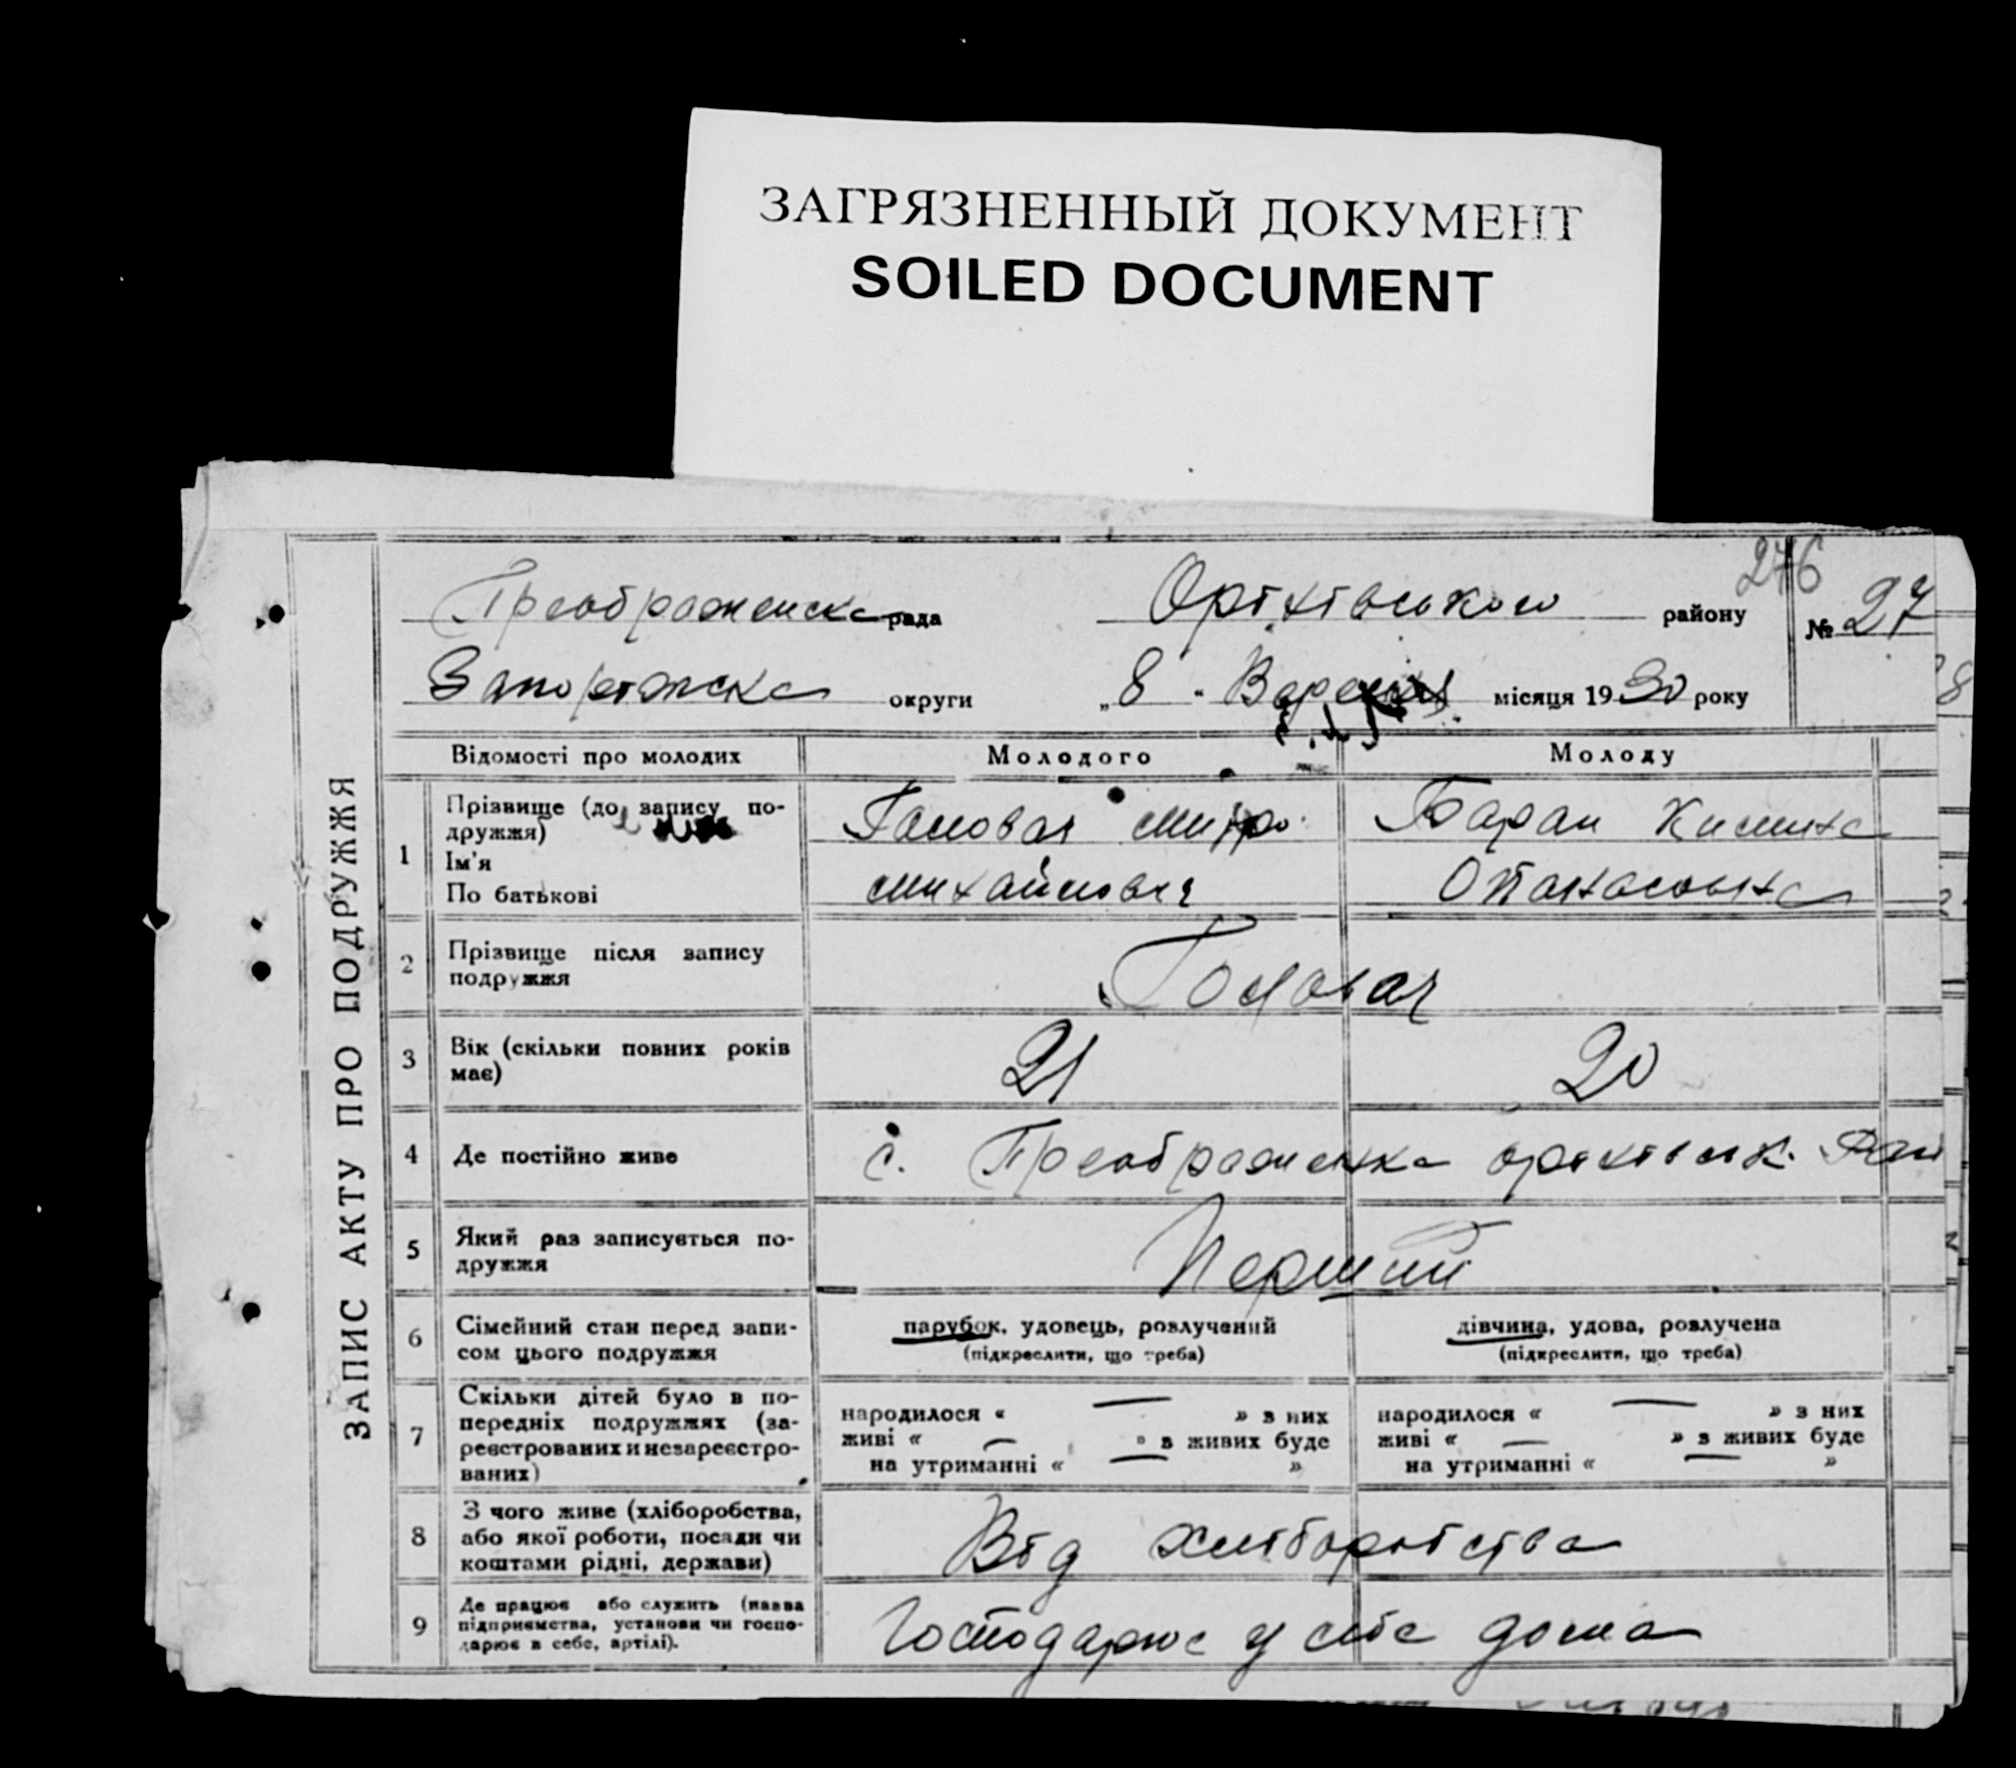 ЗАГРЯЗНЕННЫЙ ДОКУМЕНТ
SOILED DOCUMENT
276
Преображенска рада Оріхівського району № 27
Запоріжска округи „8" Вересня місяця 1930 року
ЗАПИС АКТУ ПРО ПОДРУЖЖЯ
Відомості про молодих Молодого Молоду
1 Прізвище (до запису по-
дружжя)
Ім'я
По батькові
Головач
Михайлович
Баран
2 Прізвище після запису
подружжя
Головач
3 Вік (скільки повних років
має)
21 20
4 Де постійно живе с. Преображенка оріхівськ. Рай
5 Який раз записується по-
дружжя
Перший
6 Сімейний стан перед запи-
сом цього подружжя
парубок, удовець, розлучений
(підкреслити, що треба)
дівчина, удова, розлучена
(підкреслити, що треба)
7 Скільки дітей було в по-
передніх подружжях (за-
реєстрованих и незареєстро-
ваних)
народилося « — » з них
живі « — » в живих буде
на утриманні « — »
народилося « — » з них
живі « — » в живих буде
на утриманні « — »
8 З чого живе (хліборобства,
або якої роботи, посади чи
коштами рідні, держави)
Від хліборобства
9 Де працює або служить (назва
підприємства, установи чи госпо-
дарює в себе, артілі).
Господарює у себе дома